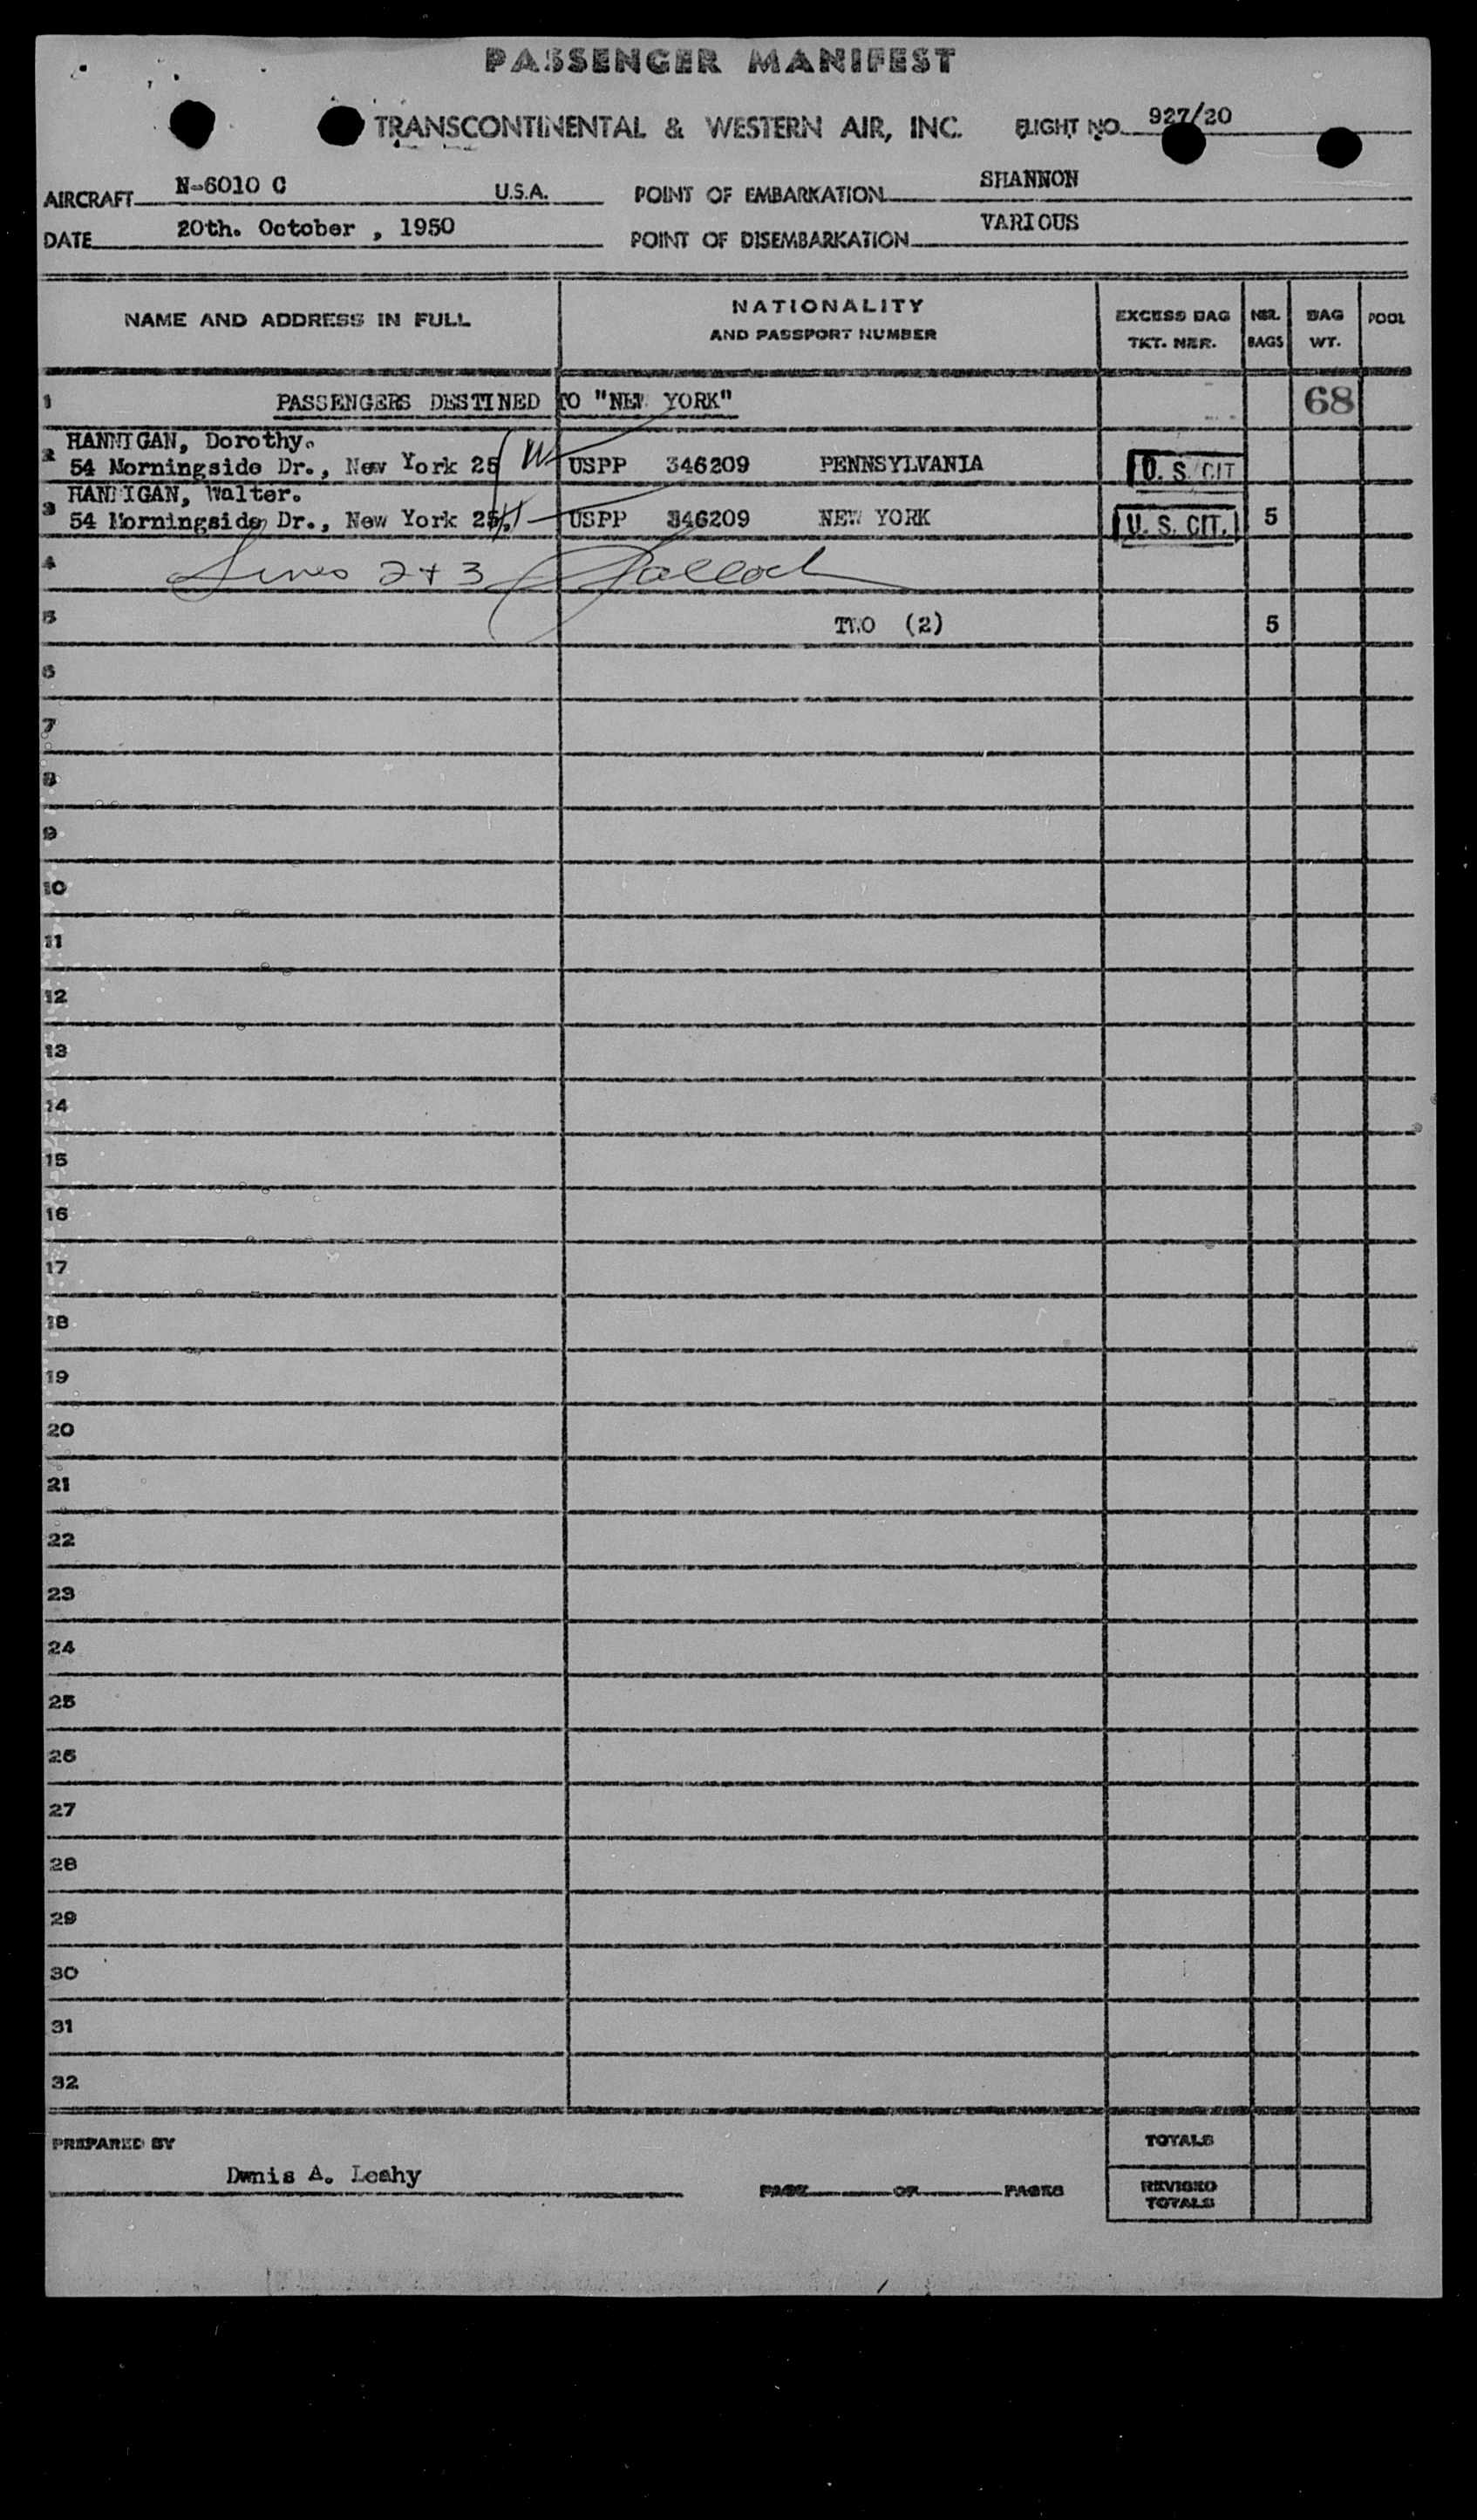 PASSENGER MANIFEST
TRANSCONTINENTAL & WESTERN AIR, INC. FLIGHT NO. 927/20
AIRCRAFT N-6010 C U.S.A. POINT OF EMBARKATION SHANNON
DATE 20th. October , 1950 POINT OF DISEMBARKATION VARIOUS
NAME AND ADDRESS IN FULL NATIONALITY AND PASSPORT NUMBER EXCESS BAG TKT. NBR. NBR. BAGS BAG WT. POOL
1 PASSENGERS DESTINED TO "NEW YORK" 68
HANNIGAN, Dorothy.
2 54 Morningside Dr., New York 25 USPP 346209 PENNSYLVANIA U. S. CIT
HANNIGAN, Walter.
3 54 Morningside Dr., New York 25. USPP 346209 NEW YORK U. S. CIT. 5
4 Lines 2 + 3
5 TWO (2) 5
6
7
8
9
10
11
12
13
14
15
16
17
18
19
20
21
22
23
24
25
26
27
28
29
30
31
32
PREPARED BY TOTALS
Dwnis A. Leahy PAGE OF PAGES REVISED TOTALS